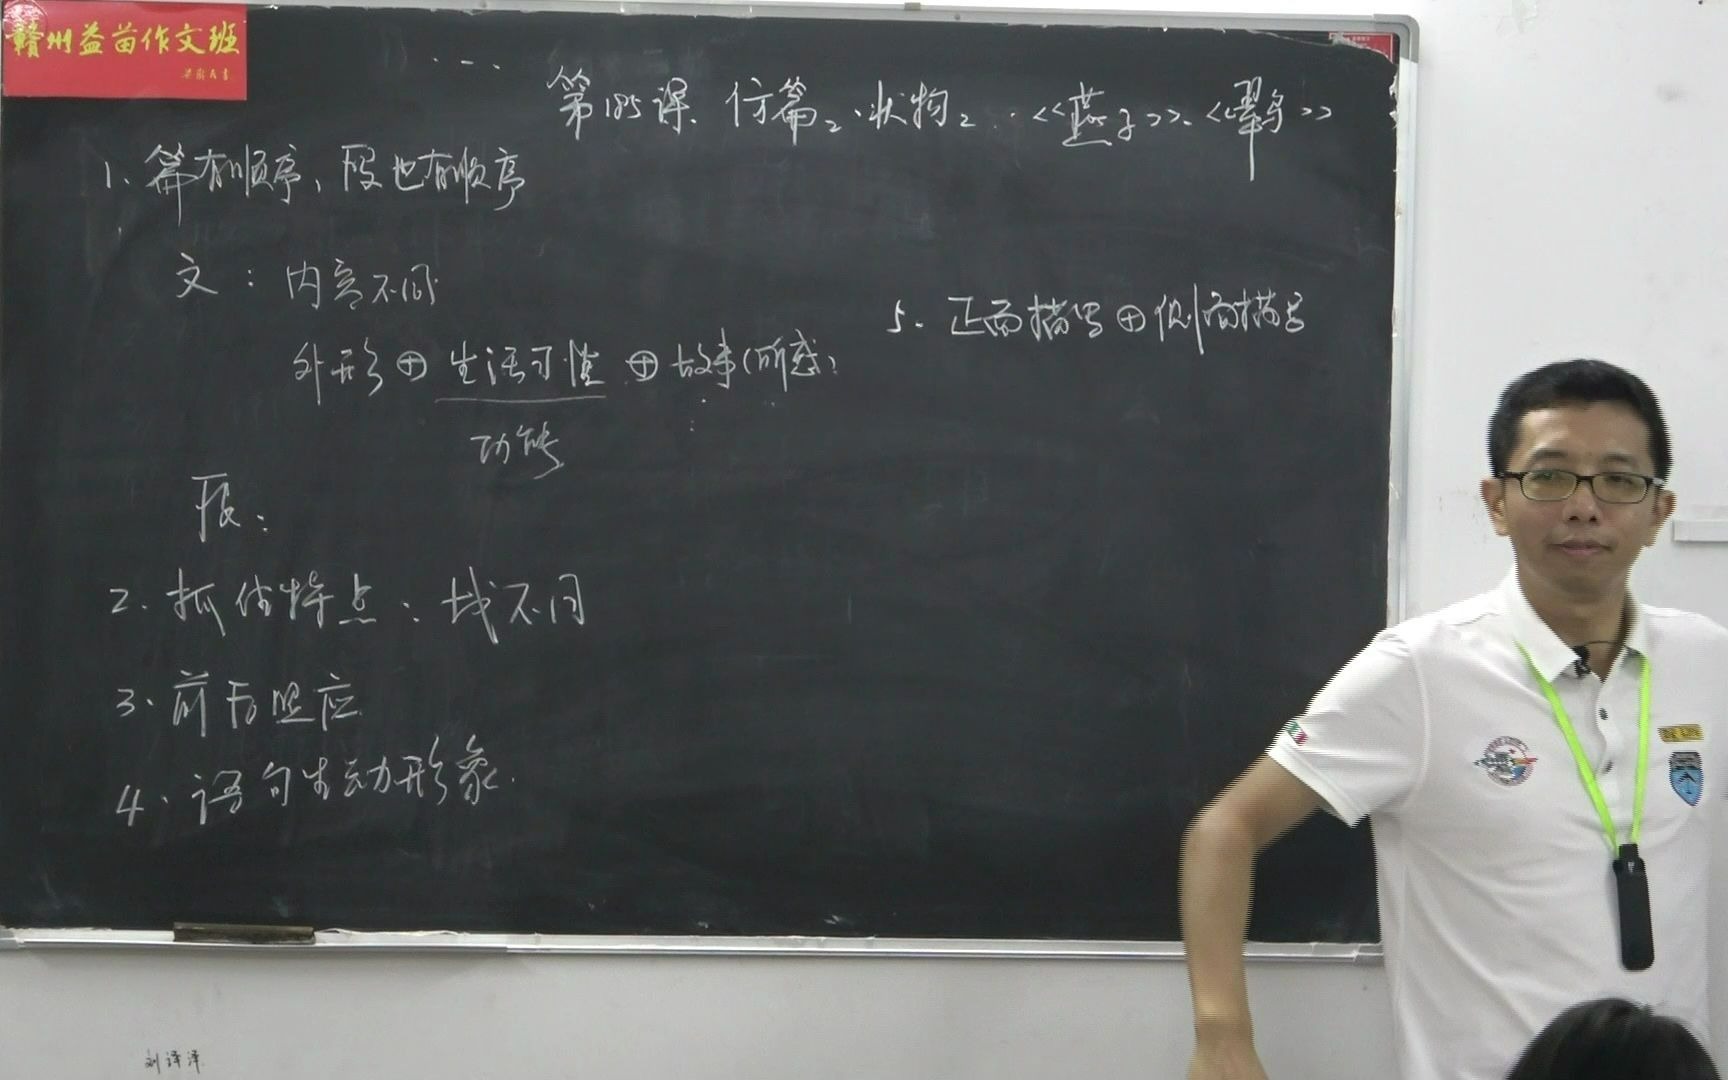 赣州益苗作文班
第185课 仿篇2、状物2 《燕子》、《翠鸟》
1、篇有顺序、段也有顺序
文：内容不同
外形⊕生活习性⊕故事(所感)
功能
段：
2、抓住特点：找不同
3、前后照应
4、语句生动形象.
5、正面描写⊕侧面描写
刘译泽